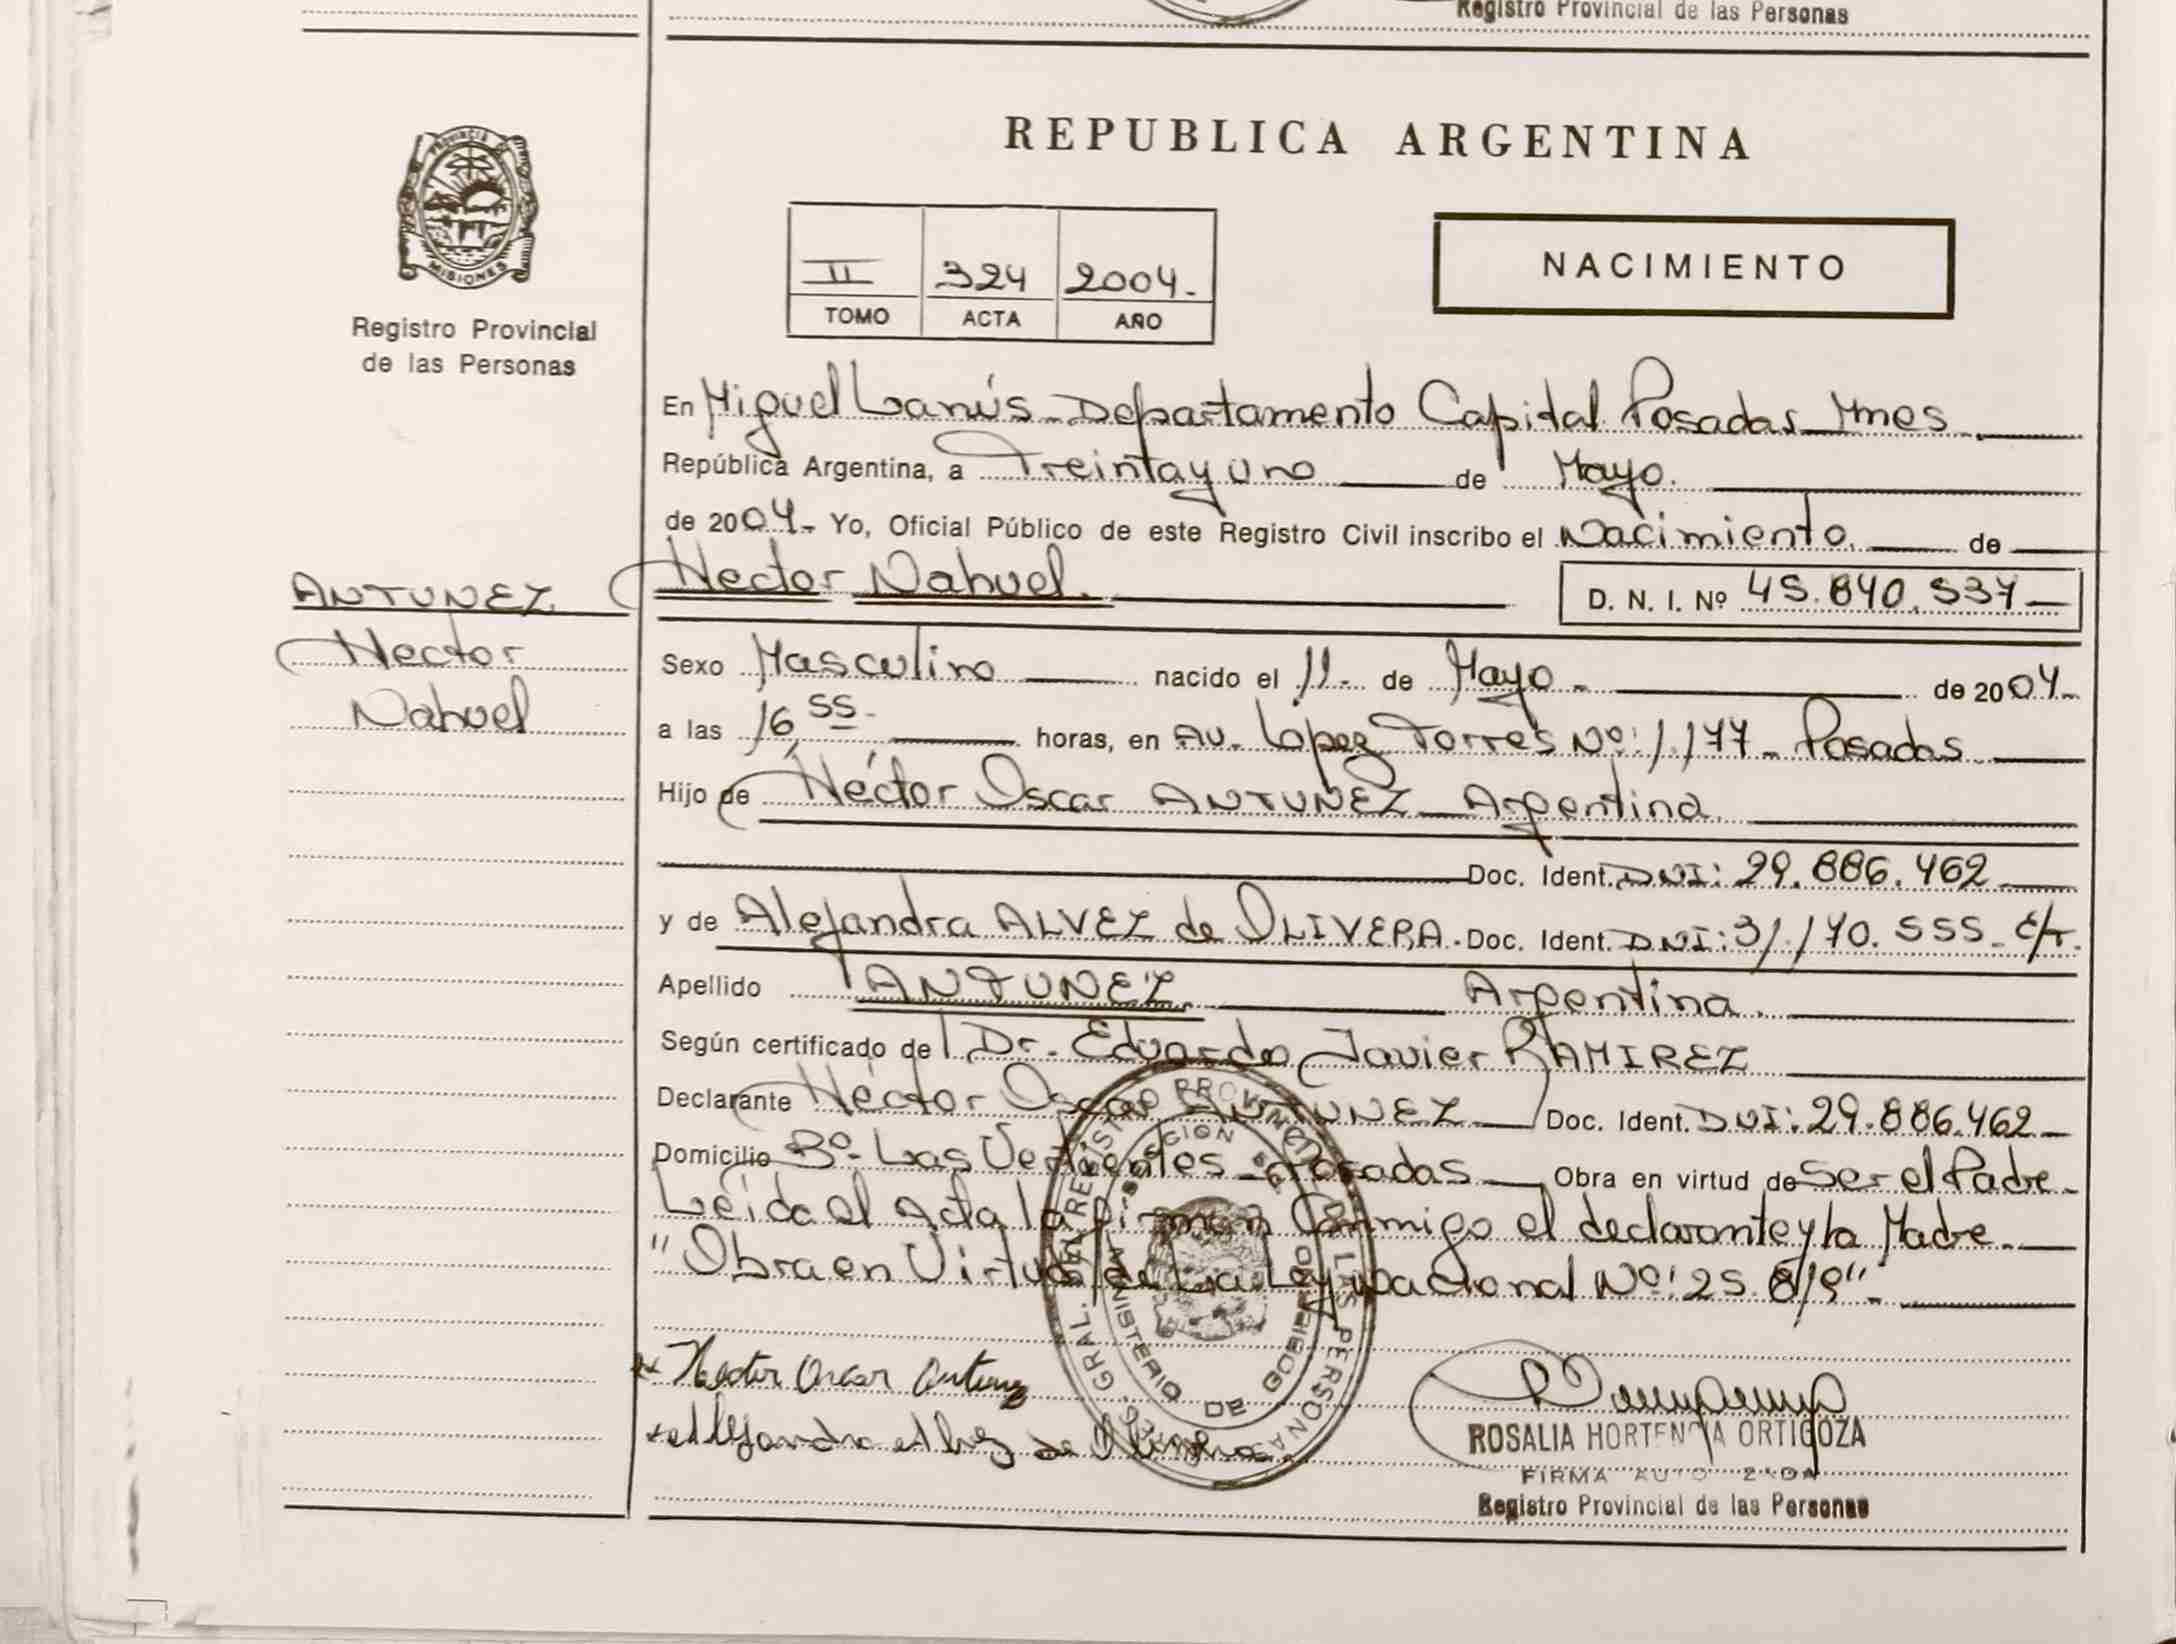 Registro Provincial de las Personas
REPUBLICA ARGENTINA
PROVINCIA DE
MISIONES
Registro Provincial
de las Personas
II 324 2004.-
TOMO ACTA AÑO
NACIMIENTO
En Miguel Lanús - Departamento Capital Posadas Mnes.
República Argentina, a Treinta y uno de Mayo.
de 2004.- Yo, Oficial Público de este Registro Civil inscribo el Nacimiento. de
Hector Nahuel.
D. N. I. Nº 45.840.537
ANTUNEZ
Hector
Nahuel
Sexo Masculino nacido el 11.- de Mayo - de 2004.-
a las 16,55.- horas, en Av. López Torres Nº: 1.177 - Posadas
Hijo de Héctor Oscar ANTUNEZ - Argentina.
Doc. Ident. DNI: 29.886.462
y de Alejandra ALVEZ de OLIVERA. Doc. Ident. DNI: 31.170.555 -
Apellido ANTUNEZ. Argentina.
Según certificado del Dr. Eduardo Javier RAMIREZ
Declarante Héctor Oscar ANTUNEZ Doc. Ident. DNI: 29.886.462
Domicilio Bº- Las Vertientes - Posadas Obra en virtud de Ser el Padre.
Leida el Acta la firman Conmigo el declarante y la Madre.
"Obra en Virtud de La Ley Nacional Nº: 25.819".-
Hector Oscar Antunez
Alejandra Alvez de Olivera
GRAL. DEL REGISTRO PROVINCIAL DE LAS PERSONAS
MINISTERIO DE GOBIERNO
ROSALIA HORTENCIA ORTIGOZA
FIRMA AUTORIZADA
Registro Provincial de las Personas